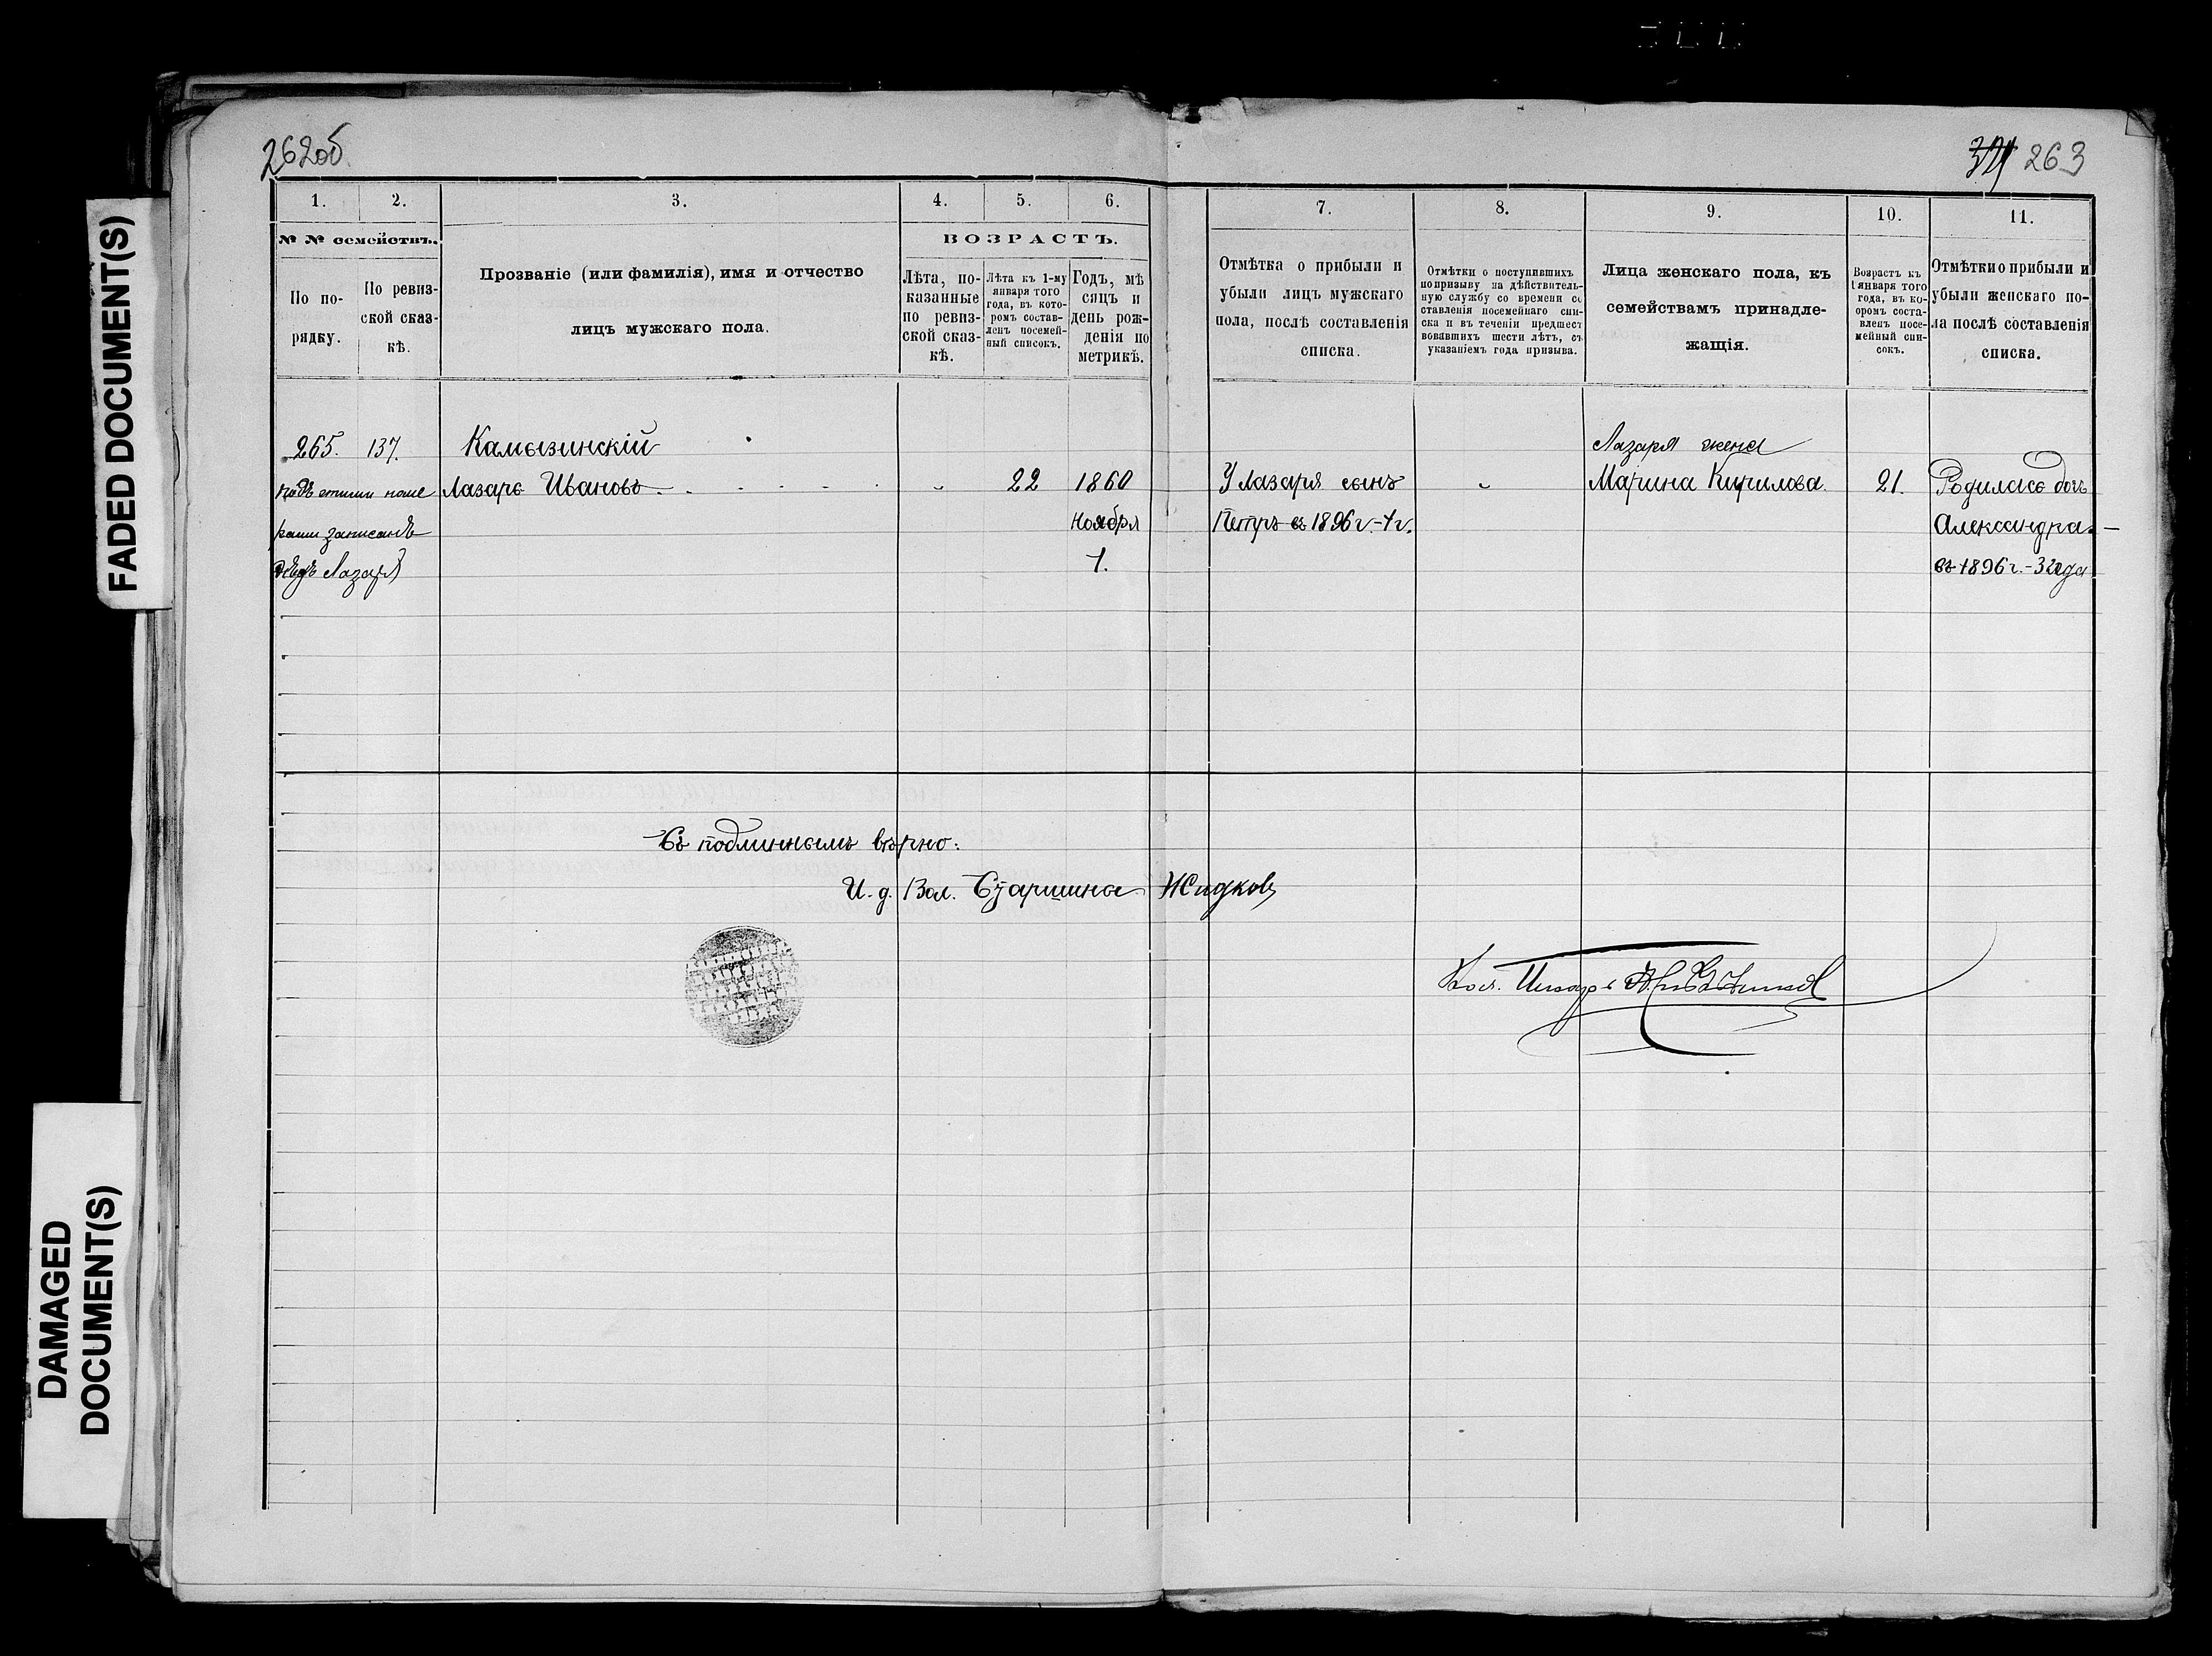 262об
321 263
FADED DOCUMENT(S)
DAMAGED
DOCUMENT(S)
1.
2.
3.
4.
5.
6.
7.
8.
9.
10.
11.
№ № семействъ.
По по-
рядку.
По ревиз-
ской сказ-
кѣ.
Прозваніе (или фамилія), имя и отчество
лицъ мужскаго пола.
ВОЗРАСТЪ.
Лѣта, по-
казанные
по ревиз-
ской сказ-
кѣ.
Лѣта къ 1-му
января того
года, въ кото-
ромъ состав-
ленъ посемей-
ный списокъ.
Годъ, мѣ
сяцъ и
день рож-
денія по
метрикѣ.
Отмѣтка о прибыли и
убыли лицъ мужскаго
пола, послѣ составленія
списка.
Отмѣтки о поступившихъ
по призыву на дѣйствитель-
ную службу со времени со
ставленія посемейнаго спи-
ска и въ теченіи предшест
вовавшихъ шести лѣтъ, съ
указаніемъ года призыва.
Лица женскаго пола, къ
семействамъ принадле-
жащія.
Возрастъ къ
1 января того
года, въ ко-
оромъ соста-
вленъ посе-
мейный спи-
сокъ.
Отмѣтки о прибыли и
убыли женскаго по-
ла послѣ составленія
списка.
265. 137. Камызинскій Лазаря жена
подъ этими номе Лазарь Ивановъ 22 1860 У Лазаря сынъ Марина Кирилова. 21. Родилась дочь
рами записанъ ноября Петръ въ 1896 г. - 1 г. Александра. -
дѣдъ Лазаря 1. въ 1896 г. - 3 2 года
Съ подлиннымъ вѣрно:
И. д. Вол. Старшина Жидковъ
Вол. Писарь